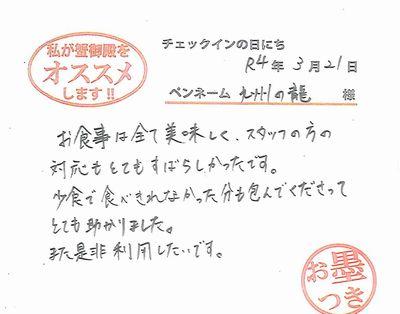 私が蟹御殿を
オススメ
します!!
チェックインの日にち
R4年 3月21日
ペンネーム 九州の龍 様
お食事は全て美味しく、スタッフの方の
対応もとてもすばらしかったです。
少食で食べきれなかった分も包んでくださって
とても助かりました。
また是非利用したいです。
お墨
つき